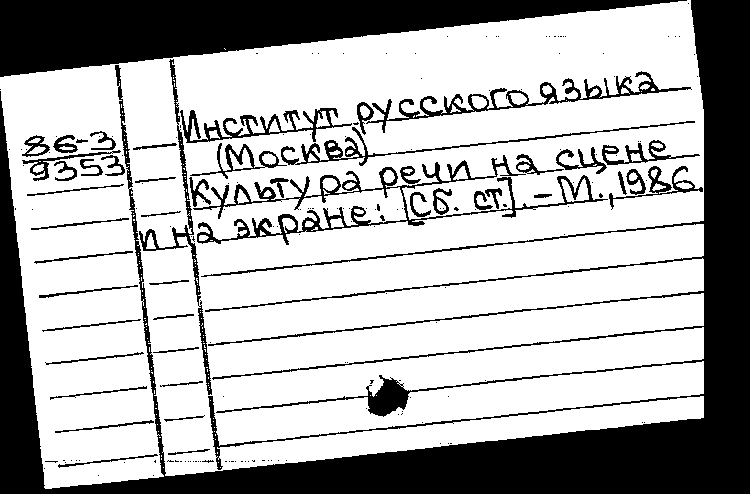 86-3
9353
Институт русского языка
(Москва)
Культура речи на сцене
и на экране: [Сб. ст.]. – М., 1986.